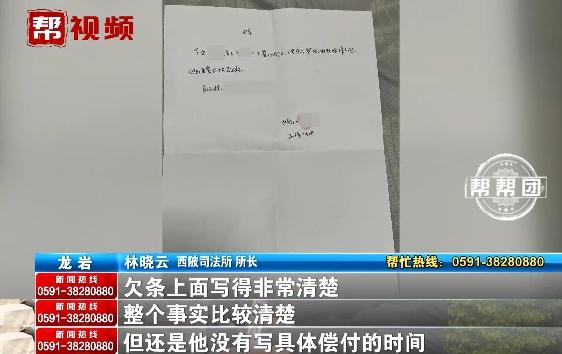 帮视频
欠条
帮帮团
龙岩
林晓云 西陂司法所 所长
帮忙热线：0591-38280880
新闻热线
0591-38280880
欠条上面写得非常清楚
新闻热线
0591-38280880
整个事实比较清楚
新闻热线
0591-38280880
但还是他没有写具体偿付的时间